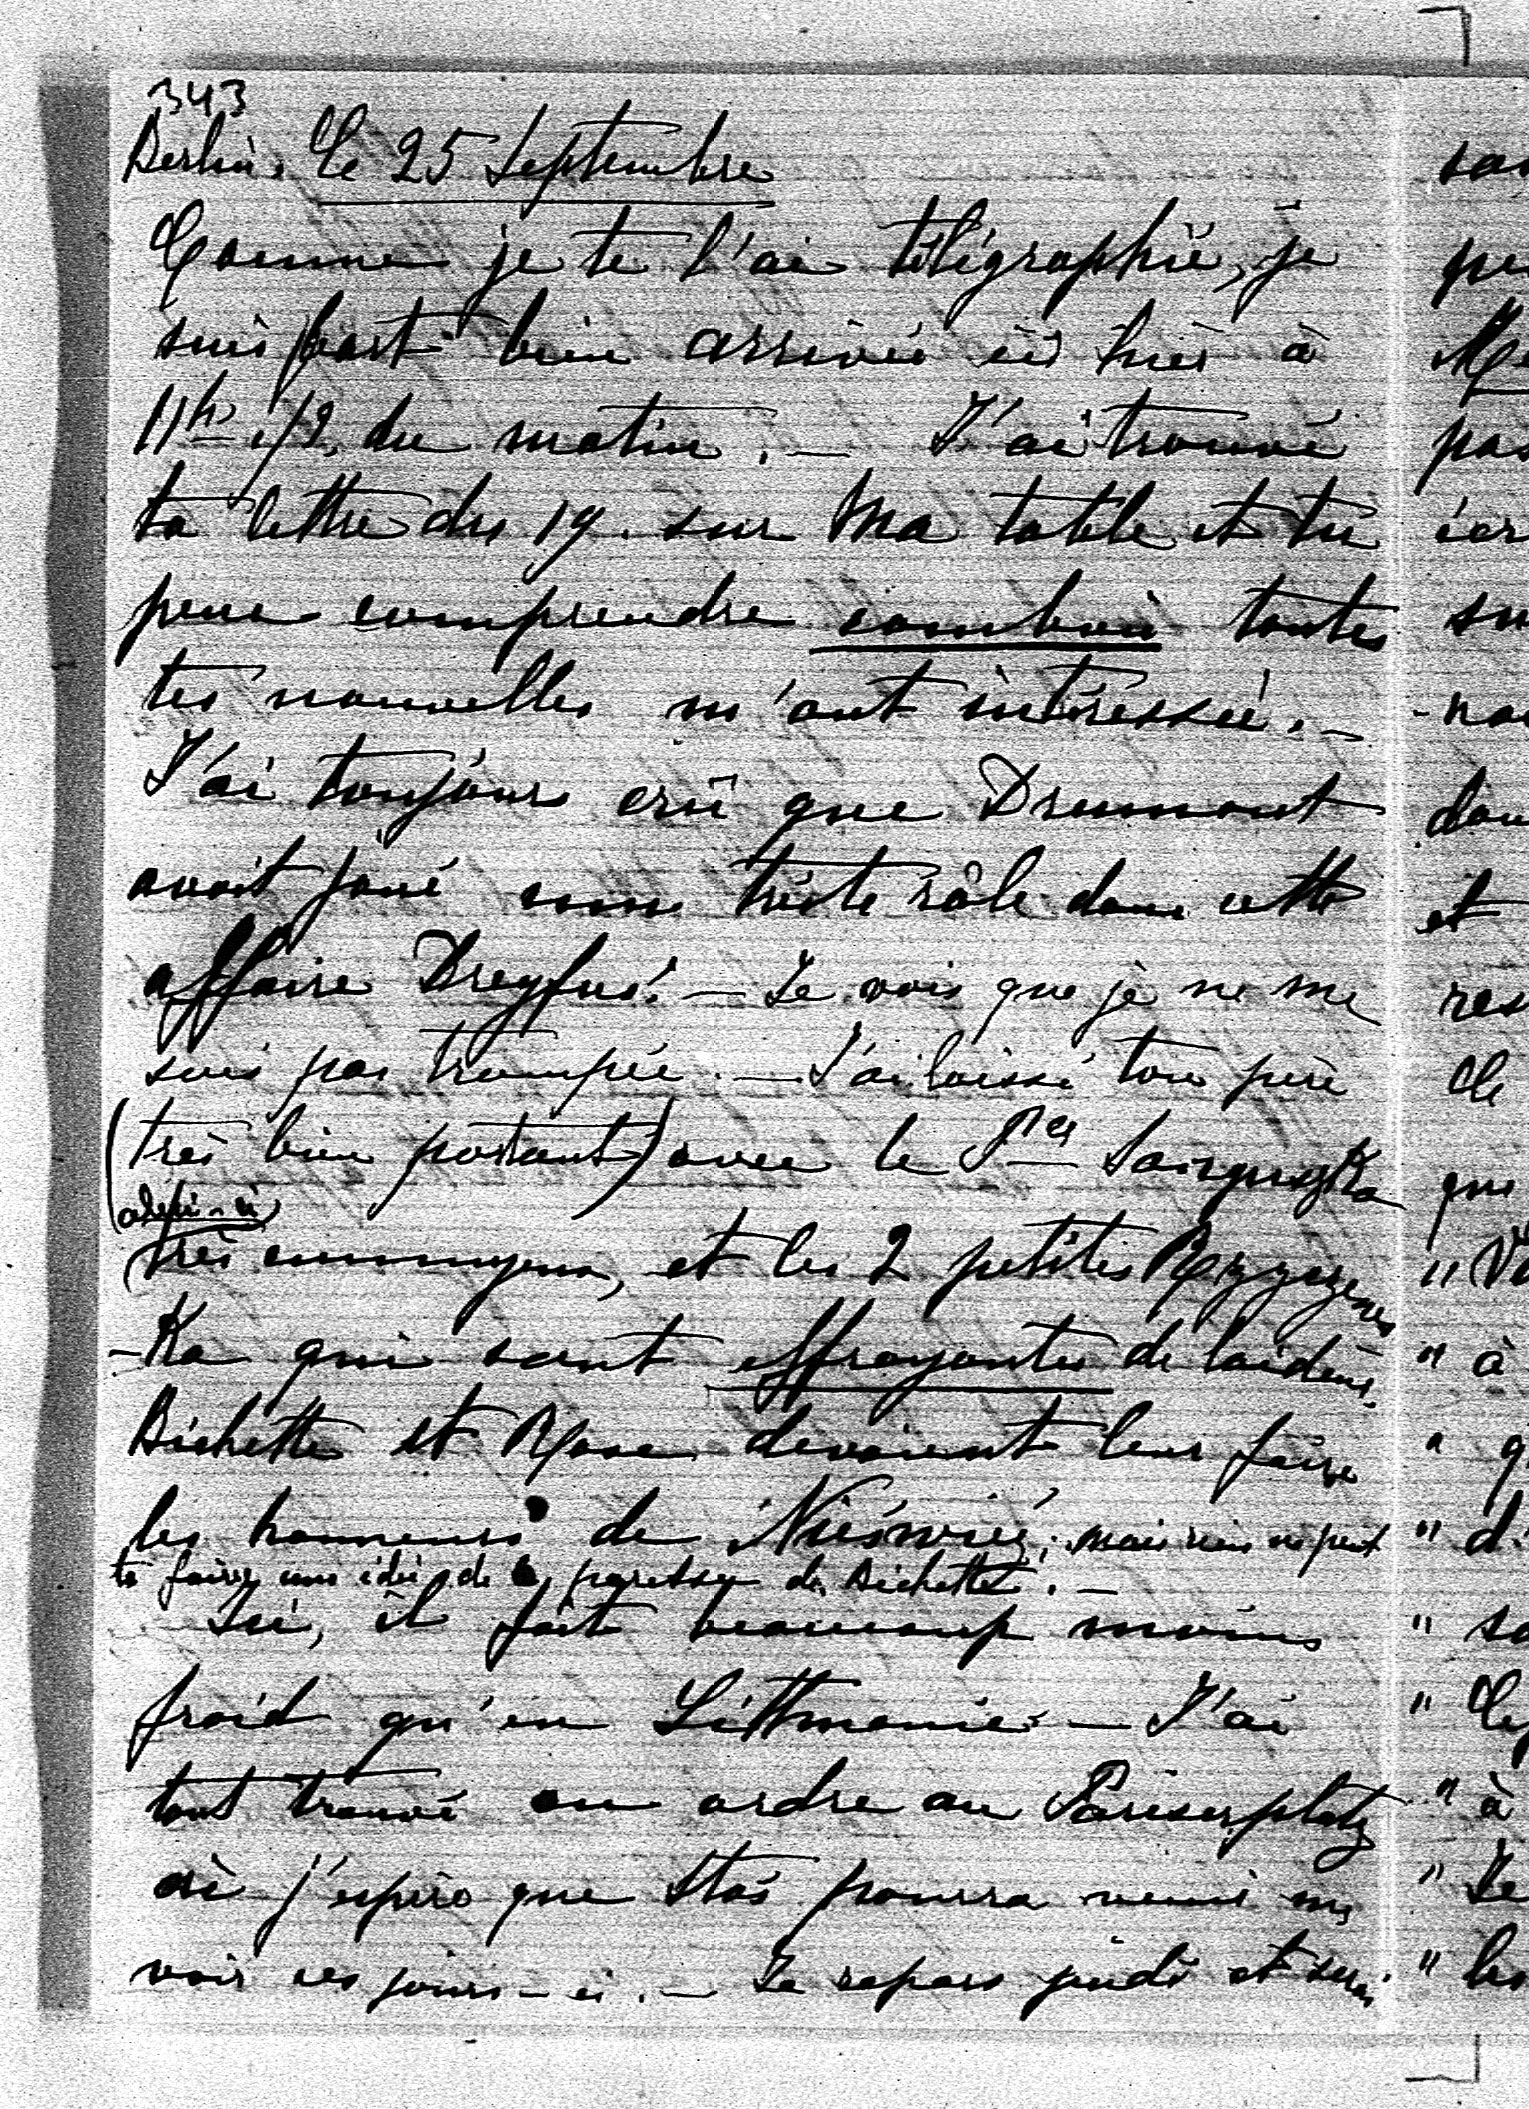 343
Berlin. Ce 25 Septembre
Comme je te l'ai télégraphié, je
suis fort bien arrivée ici hier à
11h 1/2 du matin. — J'ai trouvé
ta lettre du 19 sur ma table et tu
peux comprendre combien toutes
tes nouvelles m'ont intéressée. —
J'ai toujours crû que Drumont
avait joué un triste rôle dans cette
affaire Dreyfus! — Je vois que je ne me
suis pas trompée. — J'ai laissé ton père
(très bien portant) avec le Pce
(celui-ci)
très ennuyeux, et les 2 petites
-ka qui sont effroyantes de laideur.
Bichette et Rose devaient leur faire
les honneurs de Nieśwież; mais rien ne peut
te faire une idée de paresse de Bichette. —
Ici, il fait beaucoup moins
froid qu'en Litthuanie — J'ai
tout trouvé en ordre au Pariserplatz
où j'espère que Staś pourra venir me
voir ces jours-ci. — Je repars jeudi et serai